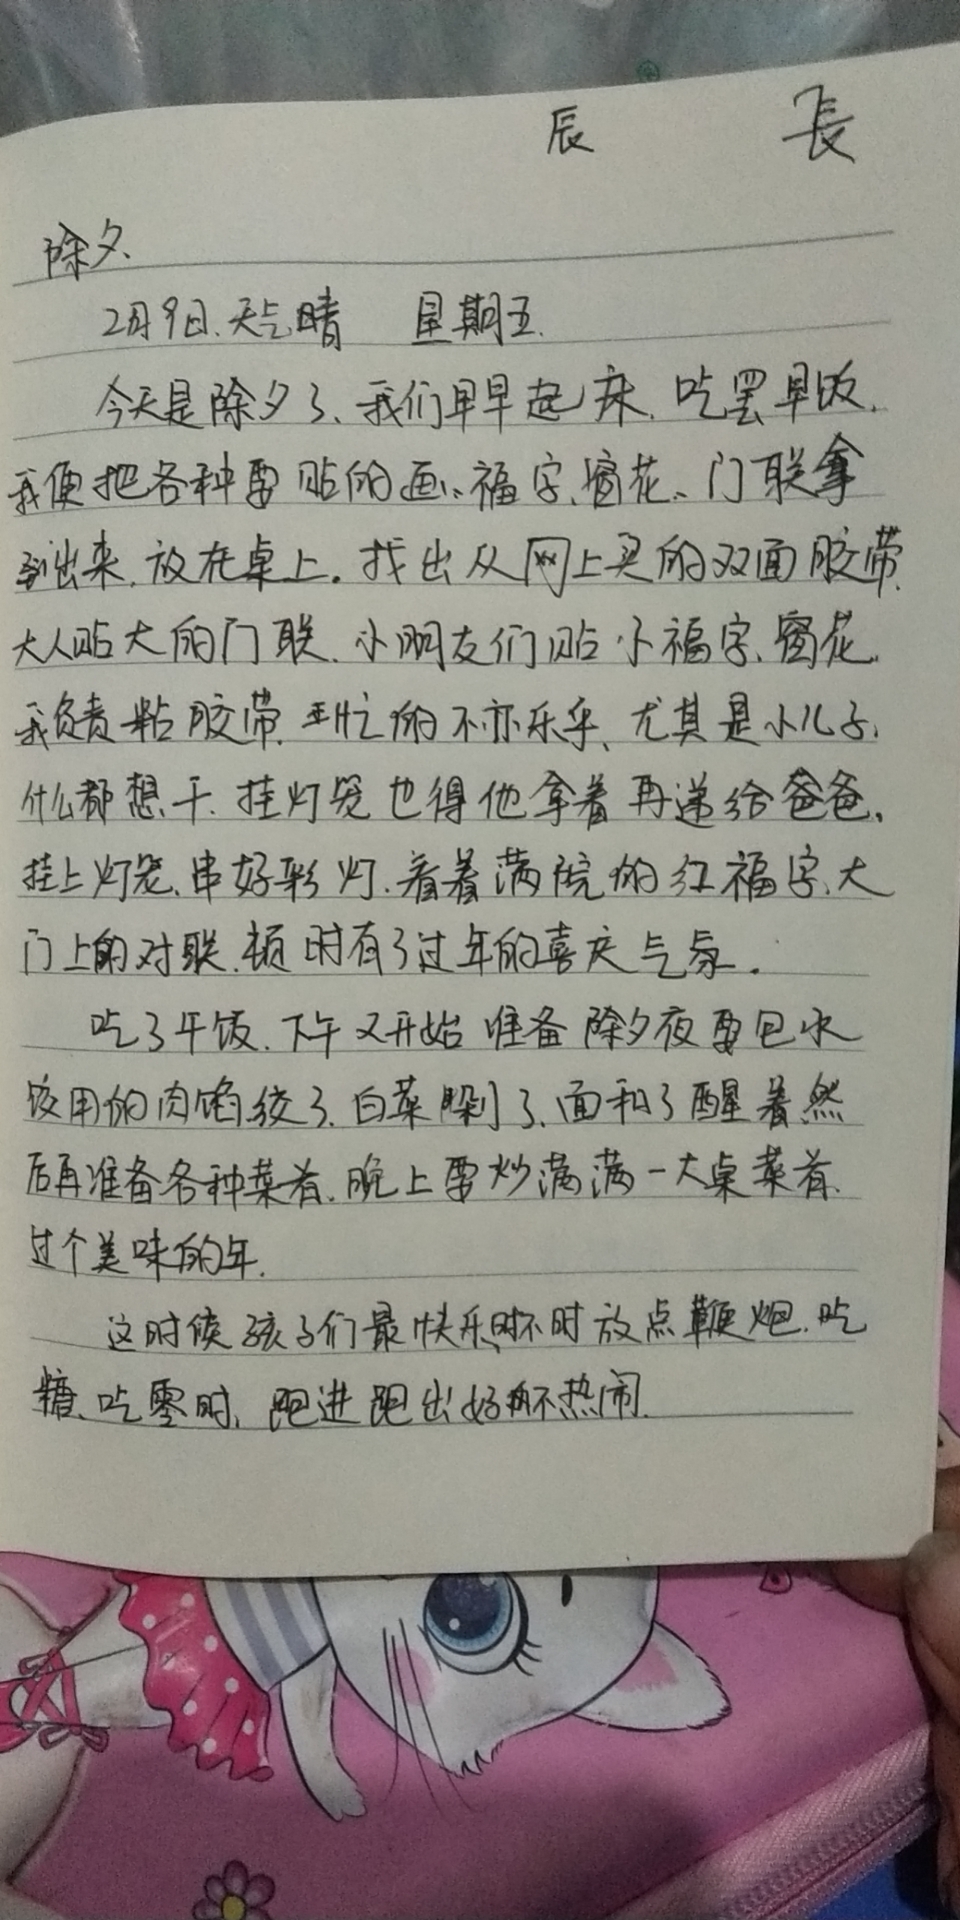 辰 長
除夕、
2月9日.天气晴 星期五.
今天是除夕了、我们早早起床.吃罢早饭.
我便把各种要贴的画、福字、窗花、门联拿
到出来.放在桌上。找出从网上买的双面胶带.
大人贴大的门联.小朋友们贴小福字、窗花.
我负责粘胶带.忙的不亦乐乎、尤其是小儿子.
什么都想干.挂灯笼也得他拿着再递给爸爸.
挂上灯笼.串好彩灯.看着满院的红福字、大
门上的对联.顿时有了过年的喜庆气氛.
吃了午饭.下午又开始准备除夕夜要包水
饺用的肉馅绞了.白菜剁了、面和了醒着然
后再准备各种菜肴.晚上要炒满满一大桌菜肴.
过个美味的年.
这时候孩子们最快乐、时不时放点鞭炮.吃
糖、吃零时、跑进跑出好不热闹.